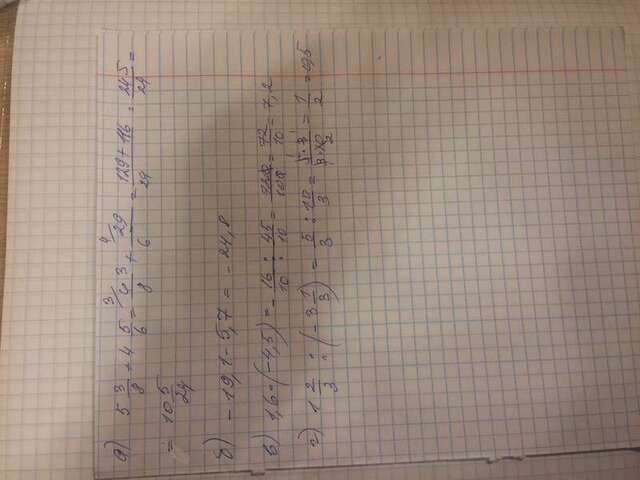 а) 5 3/8 + 4 5/6 = 3/ 43/8 + 4/ 29/6 = 129+116/24 = 245/24 =
= 10 5/24
б) -19,1-5,7 = -24,8
в) 1,6·(-4,5) = - 16/10 : 45/10 = 720/100 = 72/10 = 7,2
г) 1 2/3 : (-3 1/3) = 5/3 : 10/3 = 5·3/3·10 2 = 1/2 = 0,5